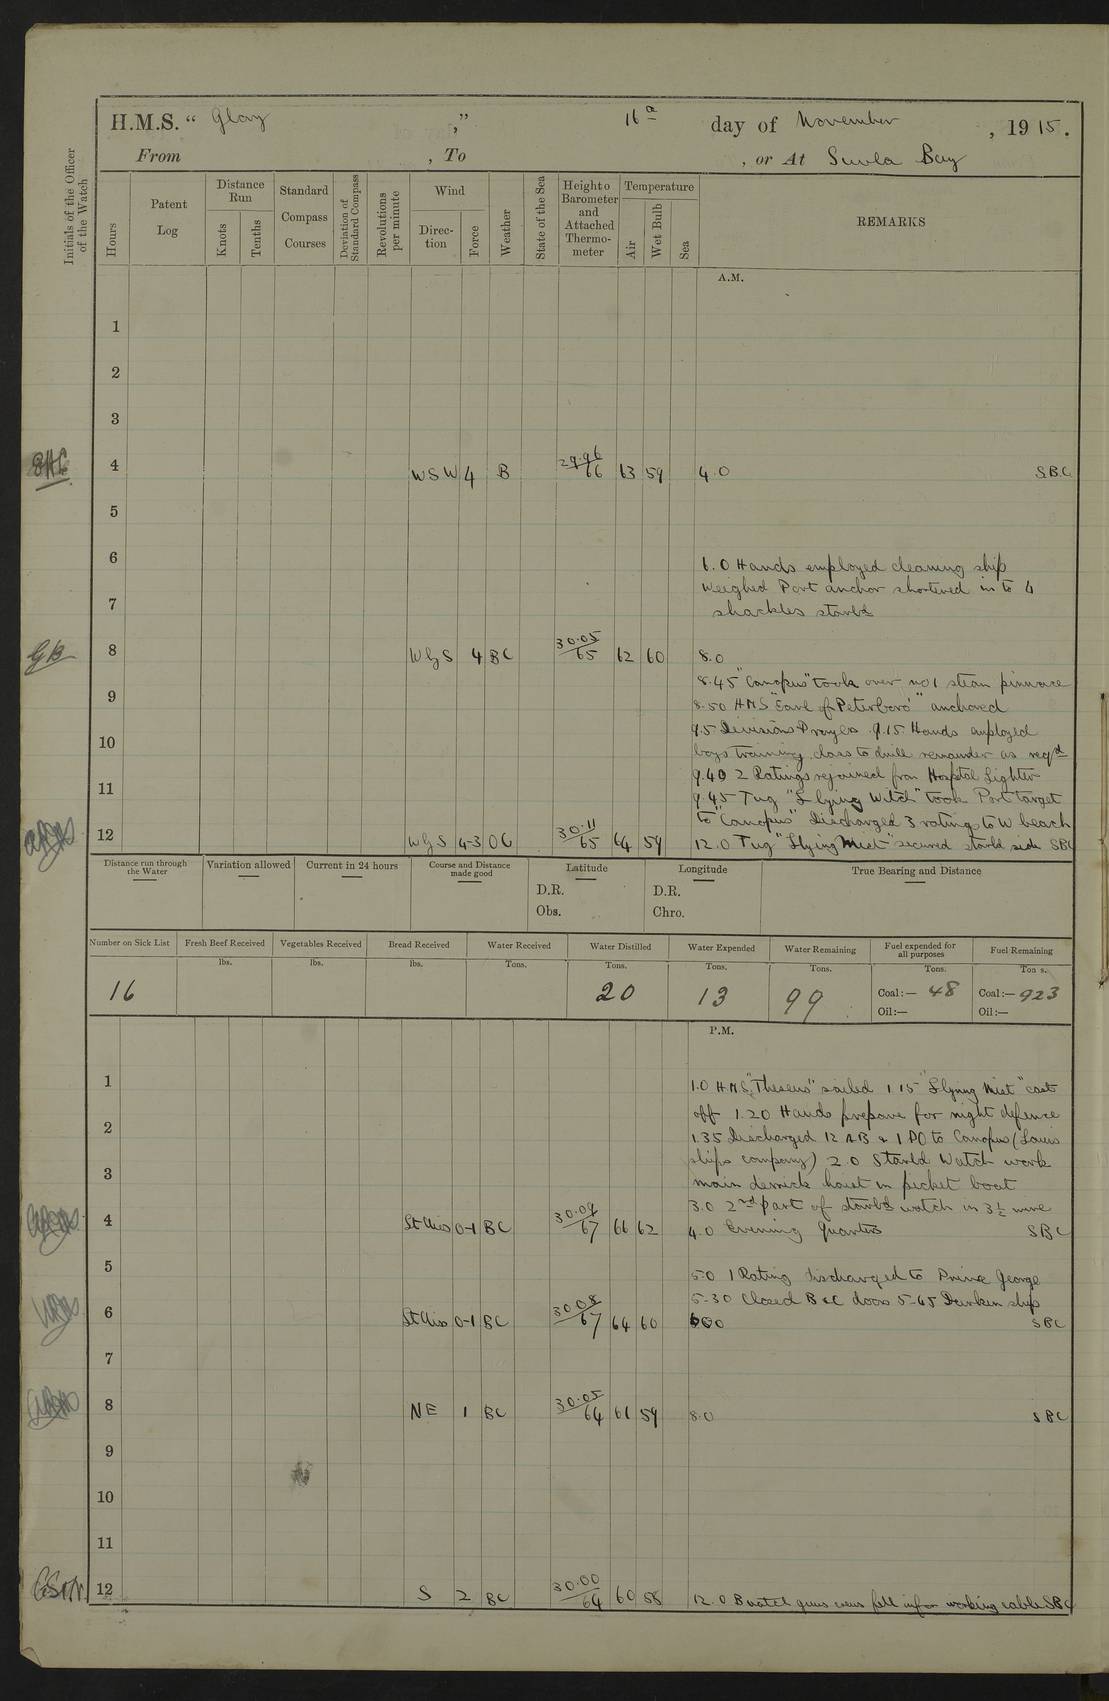 H.M.S. “ Glory ,” 16th day of November , 1915.
From , To , or At Suvla Bay
Initials of the Officer of the Watch
Hours
Patent Log
Distance Run
Knots
Tenths
Standard Compass Courses
Deviation of Standard Compass
Revolutions per minute
Wind
Direction
Force
Weather
State of the Sea
Height of Barometer and Attached Thermometer
Temperature
Air
Wet Bulb
Sea
REMARKS
A.M.
1
2
3
4 WSW 4 B 29.96/66 63 59 4.0 SBC
5
6 6.0 Hands employed cleaning ship
Weighed Port anchor shortened in to 4
7 shackles starbd
GB 8 WbyS 4 BC 30.05/65 62 60 8.0
8.45 "Canopus" took over no 1 steam pinnace
9 8.50 HMS "Earl of Peterboro'" anchored
9.5 Divisions Prayers 9.15 Hands employed
10 boys training class to drill remainder as reqd
9.40 2 Ratings rejoined from Hospital Lighter
11 9.45 Tug "Flying Witch" took Port target
to "Canopus" Discharged 3 ratings to W beach
12 WbyS 4-3 OC 30.11/65 64 59 12.0 Tug "Flying Mist" secured starbd side SBC
Distance run through the Water
Variation allowed
Current in 24 hours
Course and Distance made good
Latitude
D.R.
Obs.
Longitude
D.R.
Chro.
True Bearing and Distance
Number on Sick List
Fresh Beef Received
Vegetables Received
Bread Received
Water Received
Water Distilled
Water Expended
Water Remaining
Fuel expended for all purposes
Fuel Remaining
lbs. lbs. lbs. Tons. Tons. Tons. Tons. Tons. Tons.
16 20 13 99 Coal:— 48 Coal:— 923
Oil:— Oil:—
P.M.
1 1.0 HMS "Theseus" sailed 1.15 "Flying Mist" cast
off 1.20 Hands prepare for night defence
2 1.35 Discharged 12 AB & 1 PO to Canopus (Louis
ships company) 2.0 Starbd Watch work
3 main derrick hoist in picket boat
3.0 2nd part of starbd watch in 3½ wire
4 0-1 BC 30.04/67 66 62 4.0 Evening Quarters SBC
5 5.0 1 Rating discharged to Prince George
5-30 Closed B & C doors 5-45 Darken ship
6 0-1 BC 30.08/67 64 60 SBC
7
8 NE 1 BC 30.05/64 61 59 8.0 SBC
9
10
11
12 S 2 BC 30.00/64 60 58 12.0 working cable SBC